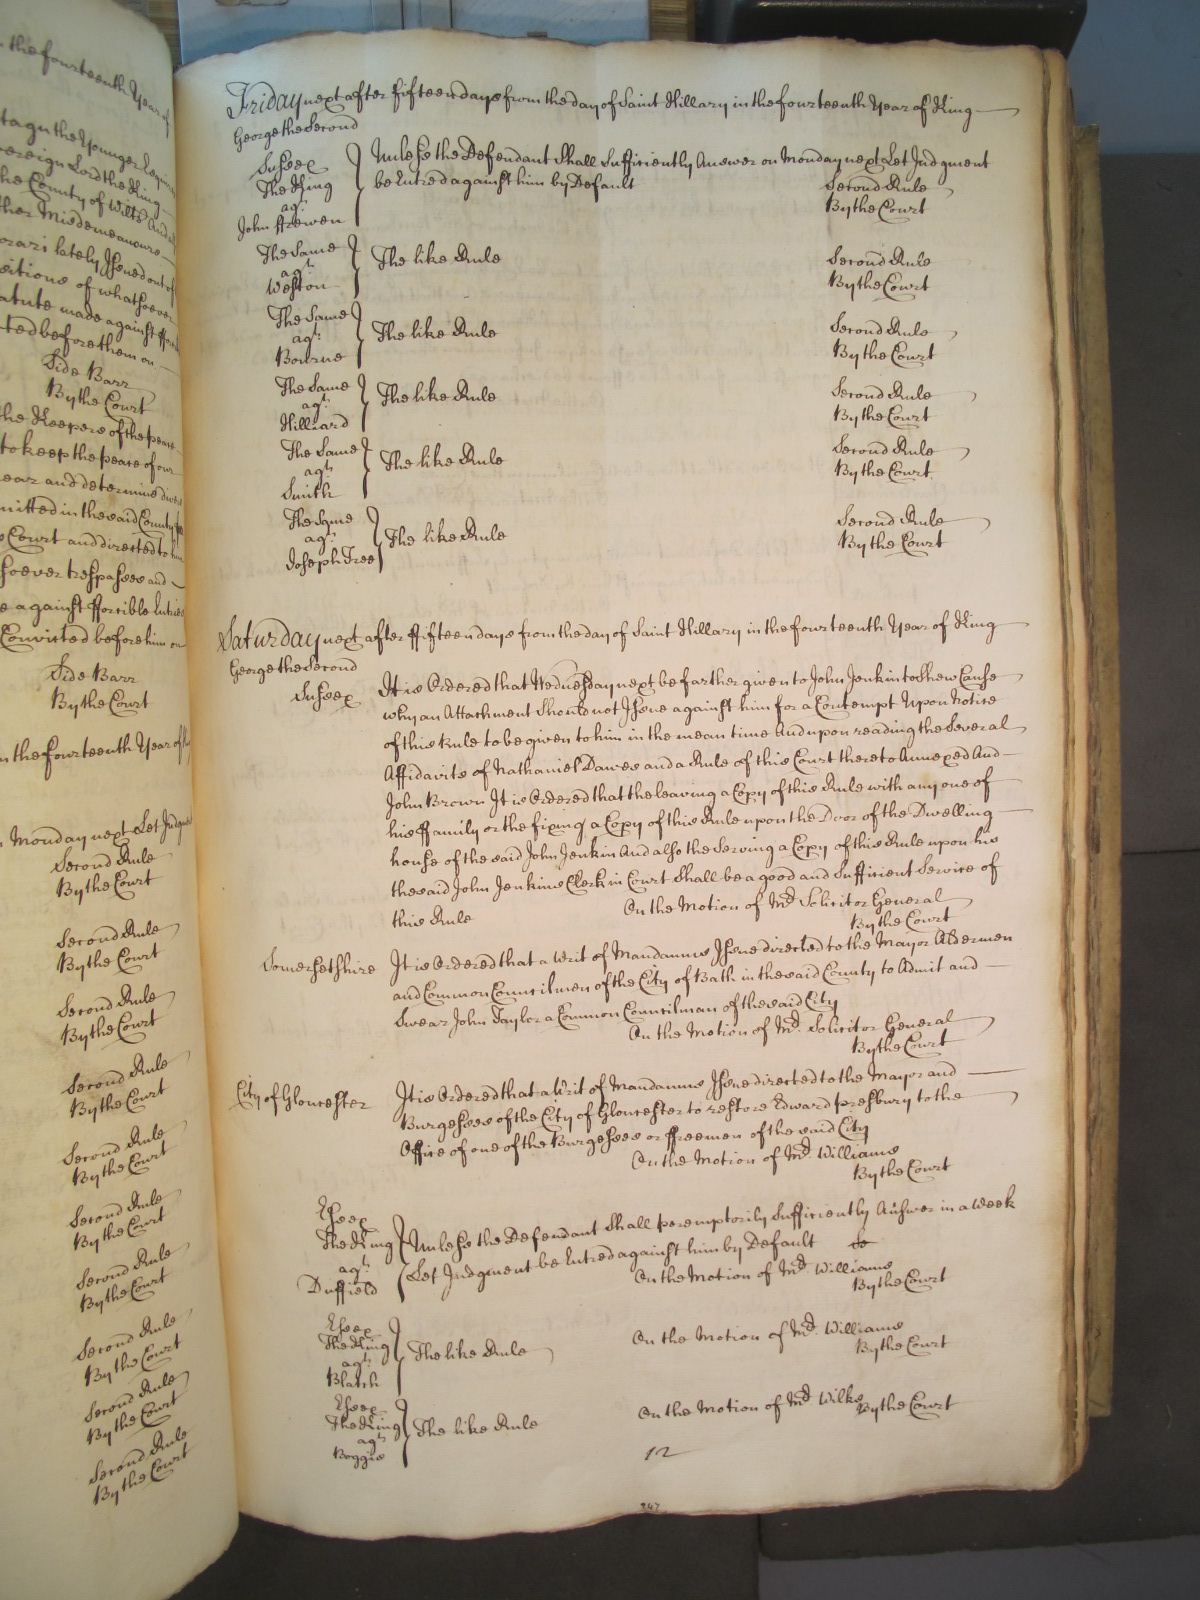 n the fourteenth Year of
tagu the Younger Esquire
vereign Lord the King
the County of Wilts And
ther Misdemeanours
orari lately Issued out of
sitions of whatsoever
atute made against
ted before them on
Side Barr
By the Court
the Keepers of the peace
to keep the peace of our
ear and determine divers
mitted in the said County
Court and directed to
soever trespasses and
e against fforcible Entries
Convicted before him on
Side Barr
By the Court
n the fourteenth Year of
Monday next Let Judgmt
Second Rule
By the Court
Second Rule
By the Court
Second Rule
By the Court
Second Rule
By the Court
Second Rule
By the Court
Second Rule
By the Court
Second Rule
By the Court
Second Rule
By the Court
Second Rule
By the Court
Second Rule
By the Court
Friday next after fifteen days from the day of Saint Hillary in the fourteenth Year of King
George the Second
Sussex
The King
agt
John ffrewen
Unlesse the Defendant Shall Sufficiently Answer on Monday next Let Judgment
be Entred against him by Default
Second Rule
By the Court
The Same
agt
Weston
The like Rule
Second Rule
By the Court
The Same
agt
Bourne
The like Rule
Second Rule
By the Court
The Same
agt
Hilliard
The like Rule
Second Rule
By the Court
The Same
agt
Smith
The like Rule
Second Rule
By the Court
The Same
agt
Joseph Tree
The like Rule
Second Rule
By the Court
Saturday next after ffifteen days from the day of Saint Hillary in the fourteenth Year of King
George the Second
Sussex
It is Ordered that Wednesday next be farther given to John Jenkin to Shew Cause
why an Attachment Should not Issue against him for a Contempt Upon Notice
of this Rule to be given to him in the mean time And upon reading the Several
Affidavits of Nathaniel Dawes and a Rule of this Court thereto Annexed And
John Brown It is Ordered that the leaving a Copy of this Rule with any one of
his ffamily or the fixing a Copy of this Rule upon the Door of the Dwelling
house of the said John Jenkin And also the Serving a Copy of this Rule upon his
the said John Jenkins Clerk in Court Shall be a good and Sufficient Service of
this Rule
On the Motion of Mr. Solicitor General
By the Court
Somersetshire
It is Ordered that a Writ of Mandamus Issue directed to the Mayor Aldermen
and Common Councilmen of the City of Bath in the said County to Admit and
Swear John Taylor a Common Councilman of the said City
On the Motion of Mr. Solicitor General
By the Court
City of Gloucester
It is Ordered that a Writ of Mandamus Issue directed to the Mayor and
Burgesses of the City of Gloucester to restore Edward Presbury to the
Office of one of the Burgesses or ffreemen of the said City
On the Motion of Mr. Williams
By the Court
Essex
The King
agt
Duffield
Unlesse the Defendant Shall peremptorily Sufficiently Answer in a Week
Let Judgment be Entred against him by Default
On the Motion of Mr. Williams
By the Court
Essex
The King
agt
Blatch
The like Rule
On the Motion of Mr. Williams
By the Court
Essex
The King
agt
Boggis
The like Rule
On the Motion of Mr. Wilks
By the Court
12
247